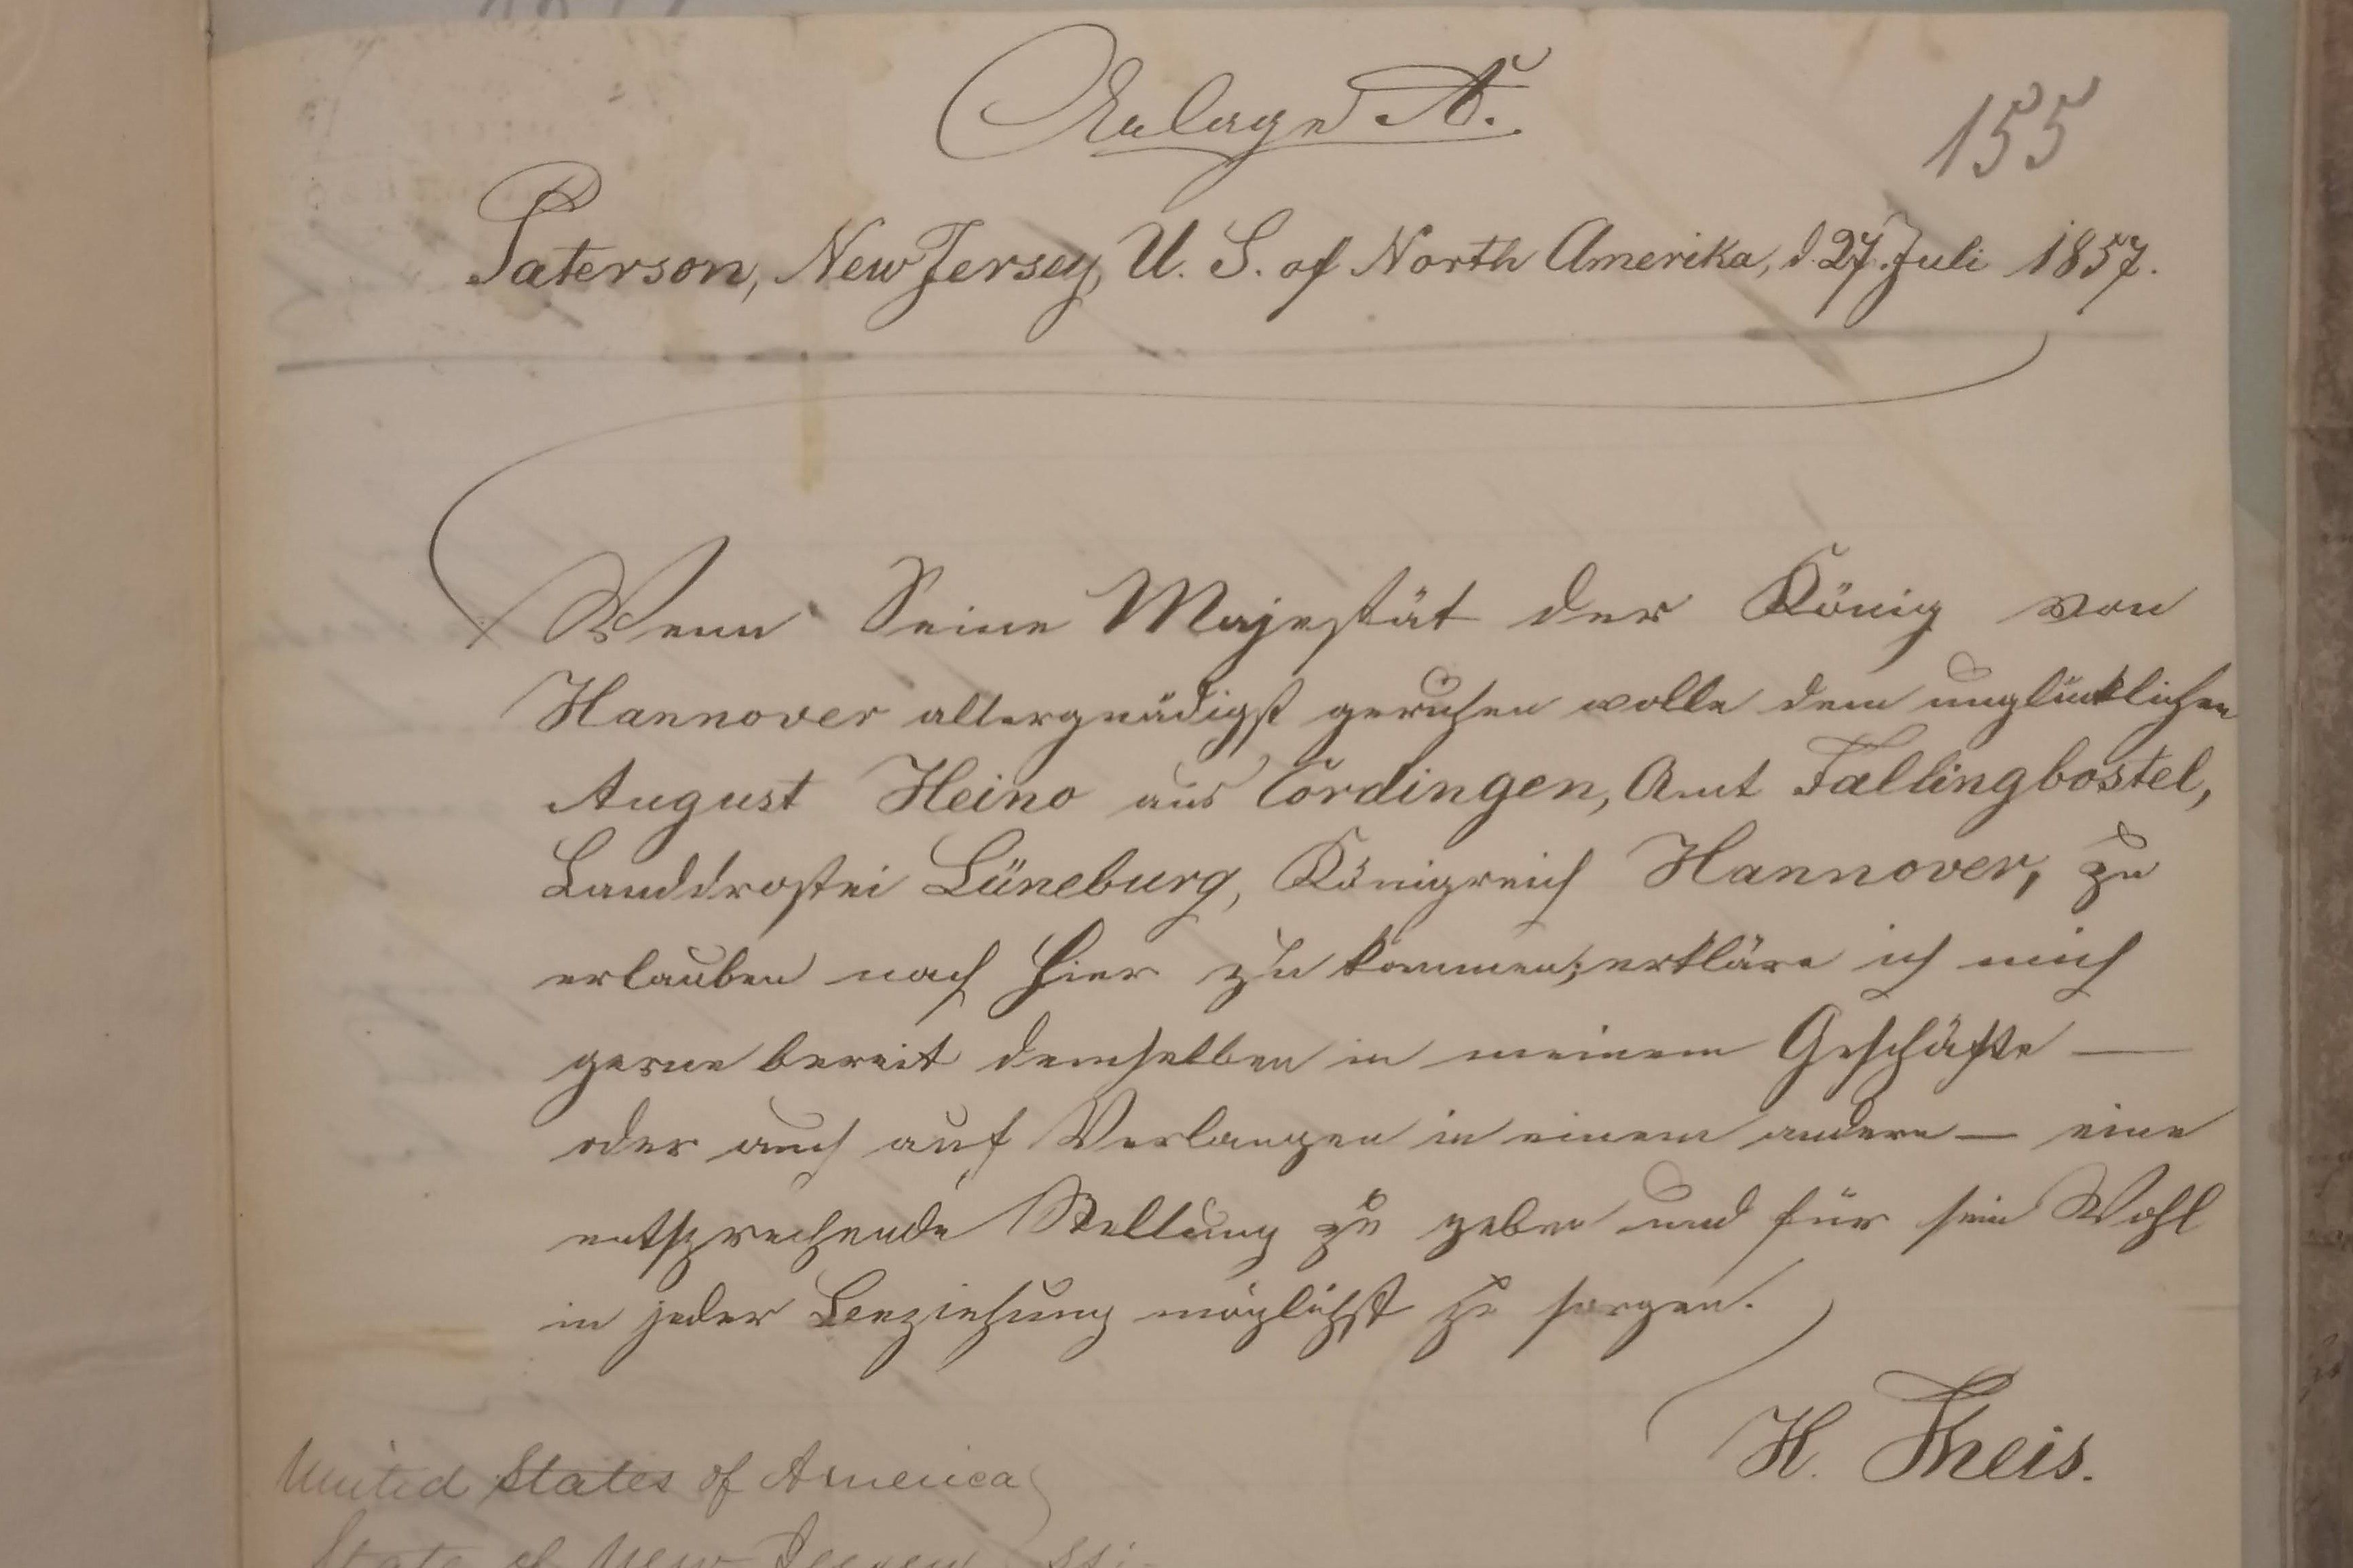 Anlage A.
155
Paterson, New Jersey, U. S. of North Amerika, d. 27. Juli 1857.
Wenn Seine Majestät der König von
Hannover allergnädigst geruhen wolle dem unglücklichen
August Heino aus Cördingen, Amt Fallingbostel,
Landdrostei Lüneburg, Königreich Hannover, zu
erlauben nach hier zu kommen; erkläre ich mich
gerne bereit demselben in meinem Geschäfte —
oder auch auf Verlangen in einem andern — eine
entsprechende Stellung zu geben und für sein Wohl
in jeder Beziehung möglichst zu sorgen.
H. Theis.
United States of America
State of New Jersey ss: